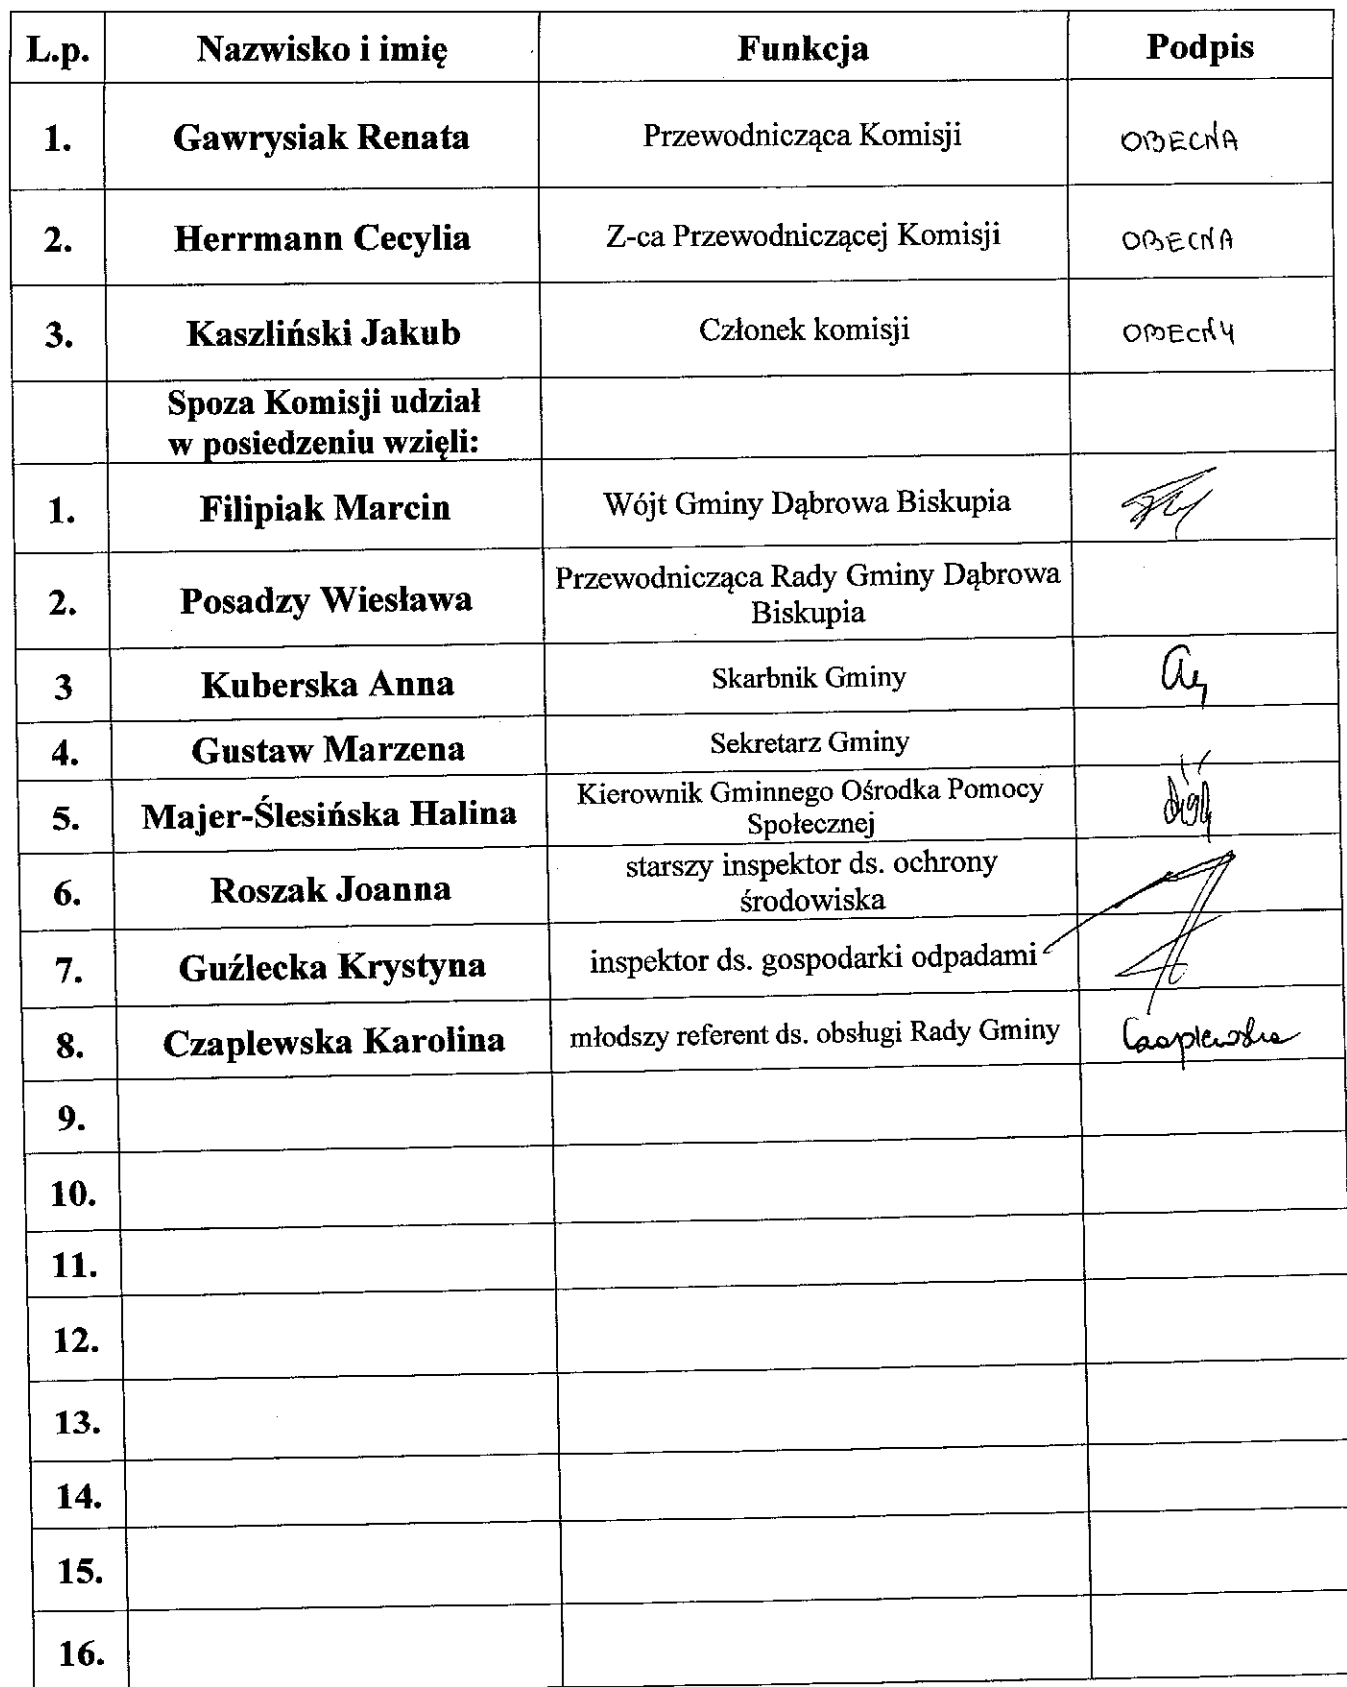 L.p. Nazwisko i imię Funkcja Podpis
1. Gawrysiak Renata Przewodnicząca Komisji OBECNA
2. Herrmann Cecylia Z-ca Przewodniczącej Komisji OBECNA
3. Kaszliński Jakub Członek komisji OBECNY
Spoza Komisji udział
w posiedzeniu wzięli:
1. Filipiak Marcin Wójt Gminy Dąbrowa Biskupia
2. Posadzy Wiesława Przewodnicząca Rady Gminy Dąbrowa
Biskupia
3 Kuberska Anna Skarbnik Gminy
4. Gustaw Marzena Sekretarz Gminy
5. Majer-Ślesińska Halina Kierownik Gminnego Ośrodka Pomocy
Społecznej
6. Roszak Joanna starszy inspektor ds. ochrony
środowiska
7. Guźlecka Krystyna inspektor ds. gospodarki odpadami
8. Czaplewska Karolina młodszy referent ds. obsługi Rady Gminy Czaplewska
9.
10.
11.
12.
13.
14.
15.
16.